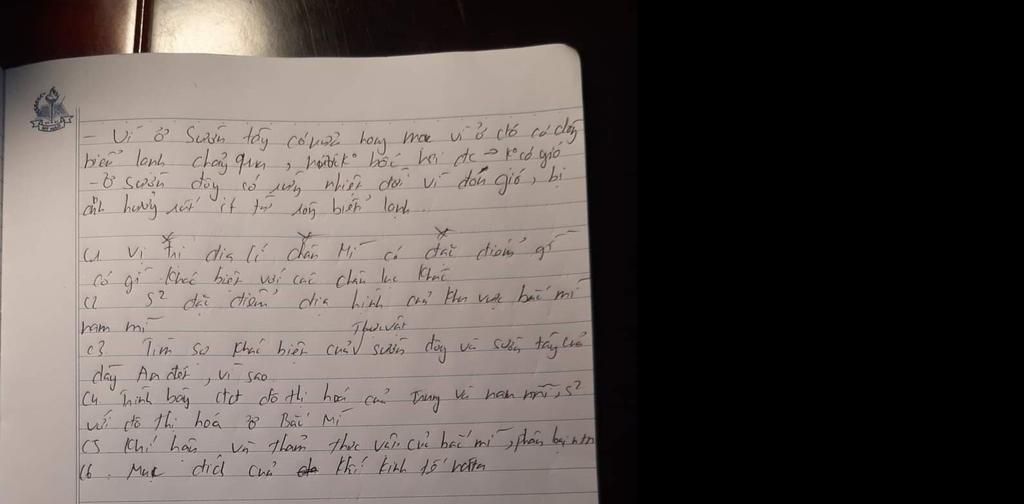 - Vì ở sườn tây có nửa hoang mạc vì ở đó có dòng
biển lạnh chảy qua, bốc hơi đc → ko có gió
- ở sườn đông có rừng nhiệt đới vì đón gió, bị
ảnh hưởng rất ít từ dòng biển lạnh.
C1 Vị trí địa lí châu Mĩ có đặc điểm gì
có gì khác biệt với các châu lục khác
C2 S² đặc điểm địa hình của khu vực bắc mĩ
nam mĩ
Thực vật
C3 Tìm sự khác biệt của sườn đông và sườn tây của
dãy An đét, vì sao
C4 Trình bày đô thị hoá của Trung và nam mĩ, S²
với đô thị hoá ở Bắc Mĩ
C5 Khí hậu và thảm thực vật của bắc mĩ, phân bố
C6 Mục đích của khối kinh tế